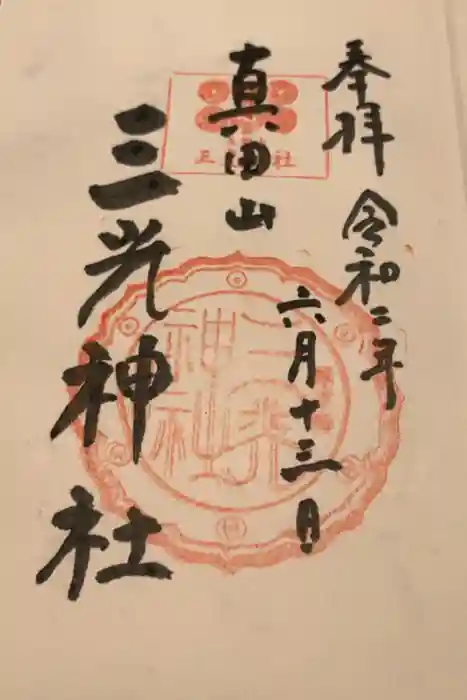 奉拝
令和二年
六月十三日
真田山
三光神社
三光神社